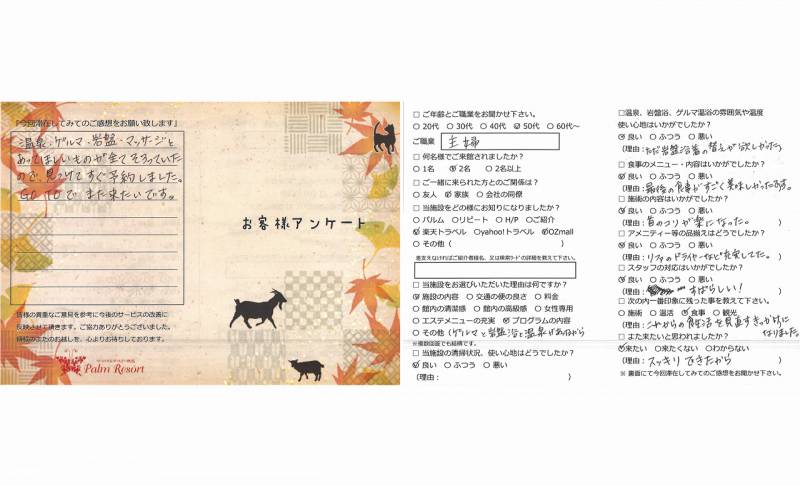 「今回滞在してみてのご感想をお願い致します」
温泉・ゲルマ・岩盤・マッサージと
あってほしいものが全てそろっていた
ので、見つけてすぐ予約しました。
GO TOでまた来たいです。
皆様の貴重なご意見を参考に今後のサービスの改善に
反映させて頂きます。ご協力ありがとうございました。
皆様のまたのお越しを、心よりお待ちしております。
Palm Resort
お客様アンケート
□ ご年齢とご職業をお聞かせ下さい。
○ 20代 ○ 30代 ○ 40代 ☑ 50代 ○ 60代～
ご職業 主婦
□ 何名様でご来館されましたか？
○ 1名 ☑ 2名 ○ 2名以上
□ ご一緒に来られた方とのご関係は？
○ 友人 ☑ 家族 ○ 会社の同僚
□ 当施設をどの様にお知りになりましたか？
○ パルム ○リピート ○ H/P ○ご紹介
☑ 楽天トラベル ○Yahoo!トラベル ☑OZmall
○ その他（ ）
差支えなければご紹介者様名、又は検索ワードの詳細を教えて下さい。
□ 当施設をお選びいただいた理由は何ですか？
☑ 施設の内容 ○ 交通の便の良さ ○ 料金
○ 館内の清潔感 ○ 館内の高級感 ○ 女性専用
○ エステメニューの充実 ☑ プログラムの内容
○ その他（ゲルマと岩盤浴と温泉があるから
※複数回答でも結構です。
□ 当施設の清掃状況、使い心地はどうでしたか？
☑ 良い ○ ふつう ○ 悪い
（理由： ）
□温泉、岩盤浴、ゲルマ温浴の雰囲気や温度
使い心地はいかがでしたか？
☑ 良い ○ ふつう ○ 悪い
（理由：ただ岩盤浴着の替えが欲しかった）
□ 食事のメニュー・内容はいかがでしたか？
☑ 良い ○ ふつう ○ 悪い
（理由：最後の食事がすごく美味しかったです。）
□ 施術の内容はいかがでしたか？
☑ 良い ○ ふつう ○ 悪い
（理由：首のコリが楽になった。）
□ アメニティー等の品揃えはどうでしたか？
☑ 良い ○ ふつう ○ 悪い
（理由：リファのドライヤーなど充実してた。）
□ スタッフの対応はいかがでしたか？
☑ 良い ○ ふつう ○ 悪い
（理由： すばらしい！ ）
□ 次の内一番印象に残った事を教えて下さい。
○ 施術 ○ 温活 ☑ 食事 ○ 観光
（理由：これからの食生活を見直すきっかけに
なりました。）
□ また来たいと思われましたか？
☑来たい ○ 来たくない ○わからない
（理由：スッキリできたから ）
※ 裏面にて今回滞在してみてのご感想をお聞かせ下さい。